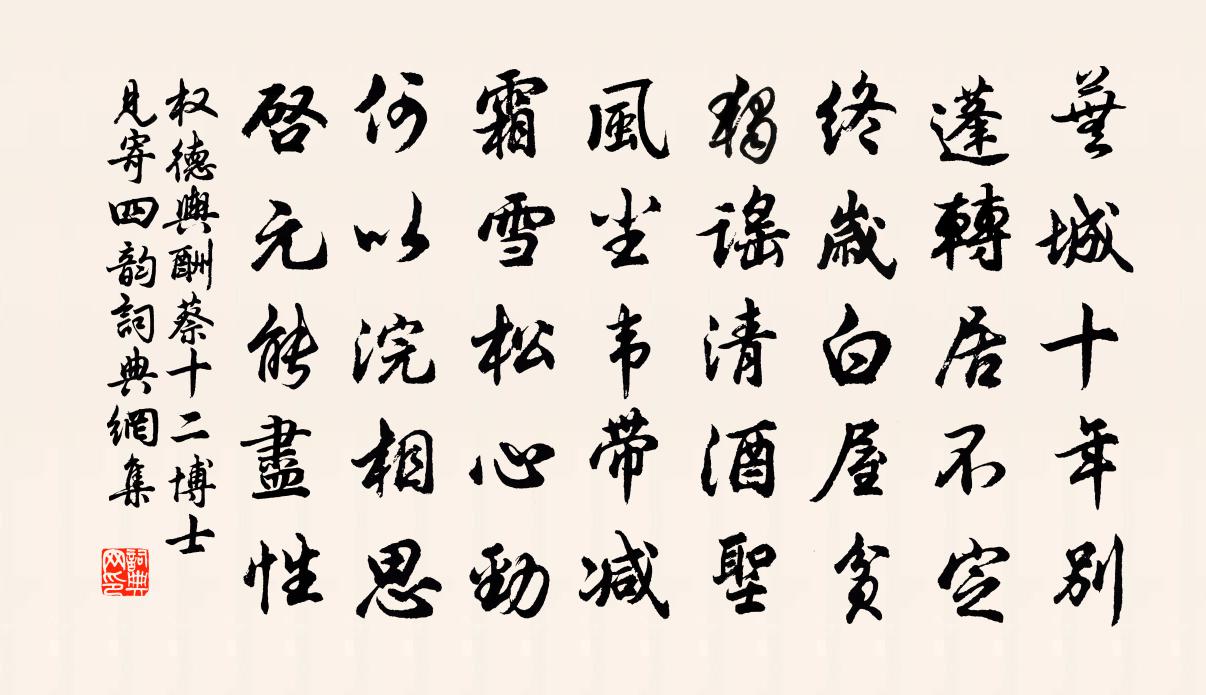 蕪城十年別
蓬轉居不定
終歲白屋貧
獨謠清酒聖
風尘韦带減
霜雪松心勁
何以浣相思
啓元能盡性
权德輿酬蔡十二博士
見寄四韵詞典網集
詞典網印